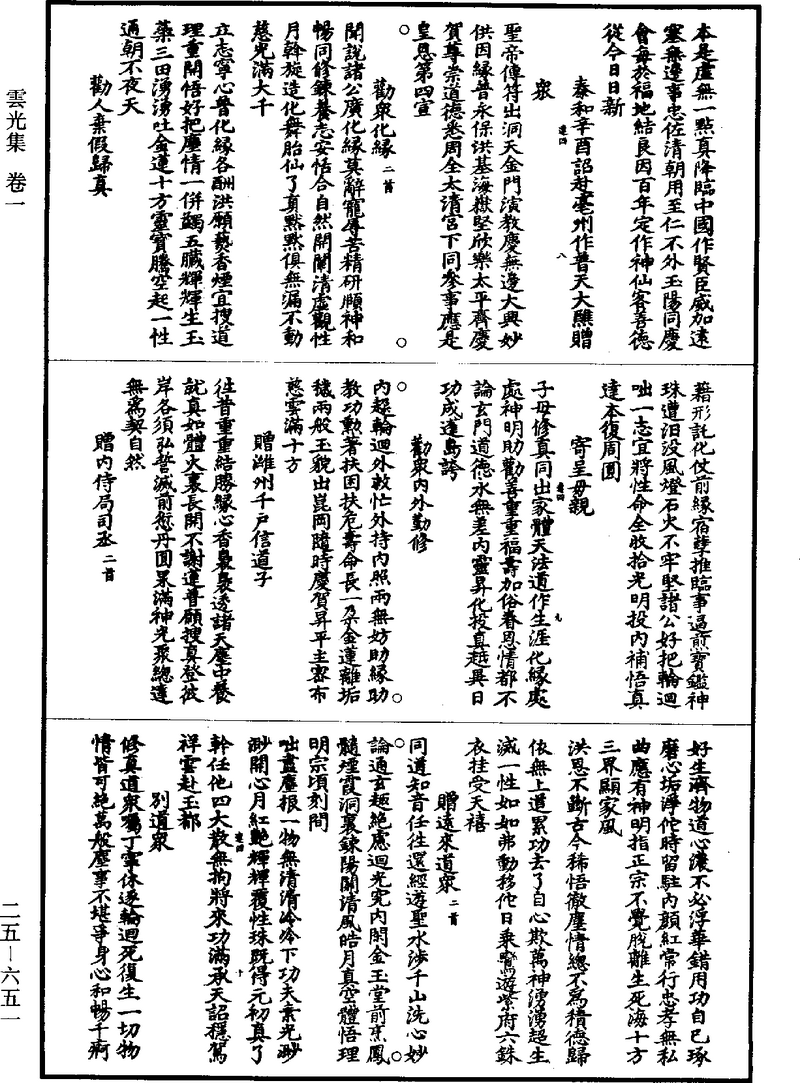 雲光集　卷一
本是虛無一點真降臨中國作賢臣威加遠
塞無邊事忠佐清朝用至仁不外玉陽同慶
會每於福地結良因百年定作神仙客善德
從今日日新
泰和辛酉詔赴亳州作普天大醮贈
衆
聖帝傳符出洞天金門演教慶無邊大興妙
供因緣普永保洪基海嶽堅欣樂太平齊慶
賀尊崇道德悉周全太清宮下同參事應是
皇恩第四宣
勸衆化緣二首
聞說諸公廣化緣莫辭寵辱苦精研頤神和
暢同修鍊養志安恬合自然開闡清虛觀性
月斡旋造化舞胎仙了真默默俱無漏不動
慈光滿大千
立志寧心普化緣各酬洪願爇香煙宜搜道
理重開悟好把塵情一併蠲五臟輝輝生玉
蘂三田湧湧吐金蓮十方靈寶騰空起一性
通朝不夜天
勸人棄假歸真
藉形託化仗前緣宿孽推臨事逼煎寶鑑神
珠遭汩沒風燈石火不牢堅諸公好把輪迴
咄一志宜將性命全收拾光明投內補悟真
達本復周圓
寄呈母親
子母修真同出家體天法道作生涯化緣處
處神明助勸善重重福壽加俗眷恩情都不
論玄門道德永無差內靈昇化投真趣異日
功成達島誇
勸衆內外勤修
內超輪迴外救忙外持內照兩無妨助緣助
教功勳著扶困扶危壽命長一朶金蓮離垢
穢兩般玉貌出崑岡隨時慶賀昇平主密布
慈雲滿十方
贈濰州千戶信道子
往昔重重結勝緣心香裊裊透諸天塵中養
就真如體火裏長開不謝蓮普願搜真登彼
岸各須弘誓滅前愆丹圓果滿神光聚總達
無爲契自然
贈內侍局司丞二首
好生濟物道心濃不必浮華錯用功自已琢
磨心垢淨佗時留駐內顏紅常行忠孝無私
曲應有神明指正宗不覺脫離生死海十方
三界顯家風
洪恩不斷古今稀悟徹塵情總不爲積德歸
依無上道累功去了自心欺萬神湧湧超生
滅一性如如弗動移佗日乘鸞遊紫府六銖
衣挂受天禧
贈遠來道衆二首
同道知音任往還經遊聖水涉千山洗心妙
論通玄趣絕慮迴光究內閑金玉堂前烹鳳
髓煙霞洞裏鍊陽關清風皓月真空體悟理
明宗頃刻間
咄盡塵根一物無清清泠泠下功夫素光渺
渺開心月紅豔輝輝覆性珠既得元初真了
幹任他四大散無拘將來功滿承天詔穩駕
祥雲赴玉都
別道衆
修真道衆囑丁寧休逐輪迴死復生一切物
情皆可絕萬般塵事不堪爭身心和暢千痾
二五－六五一